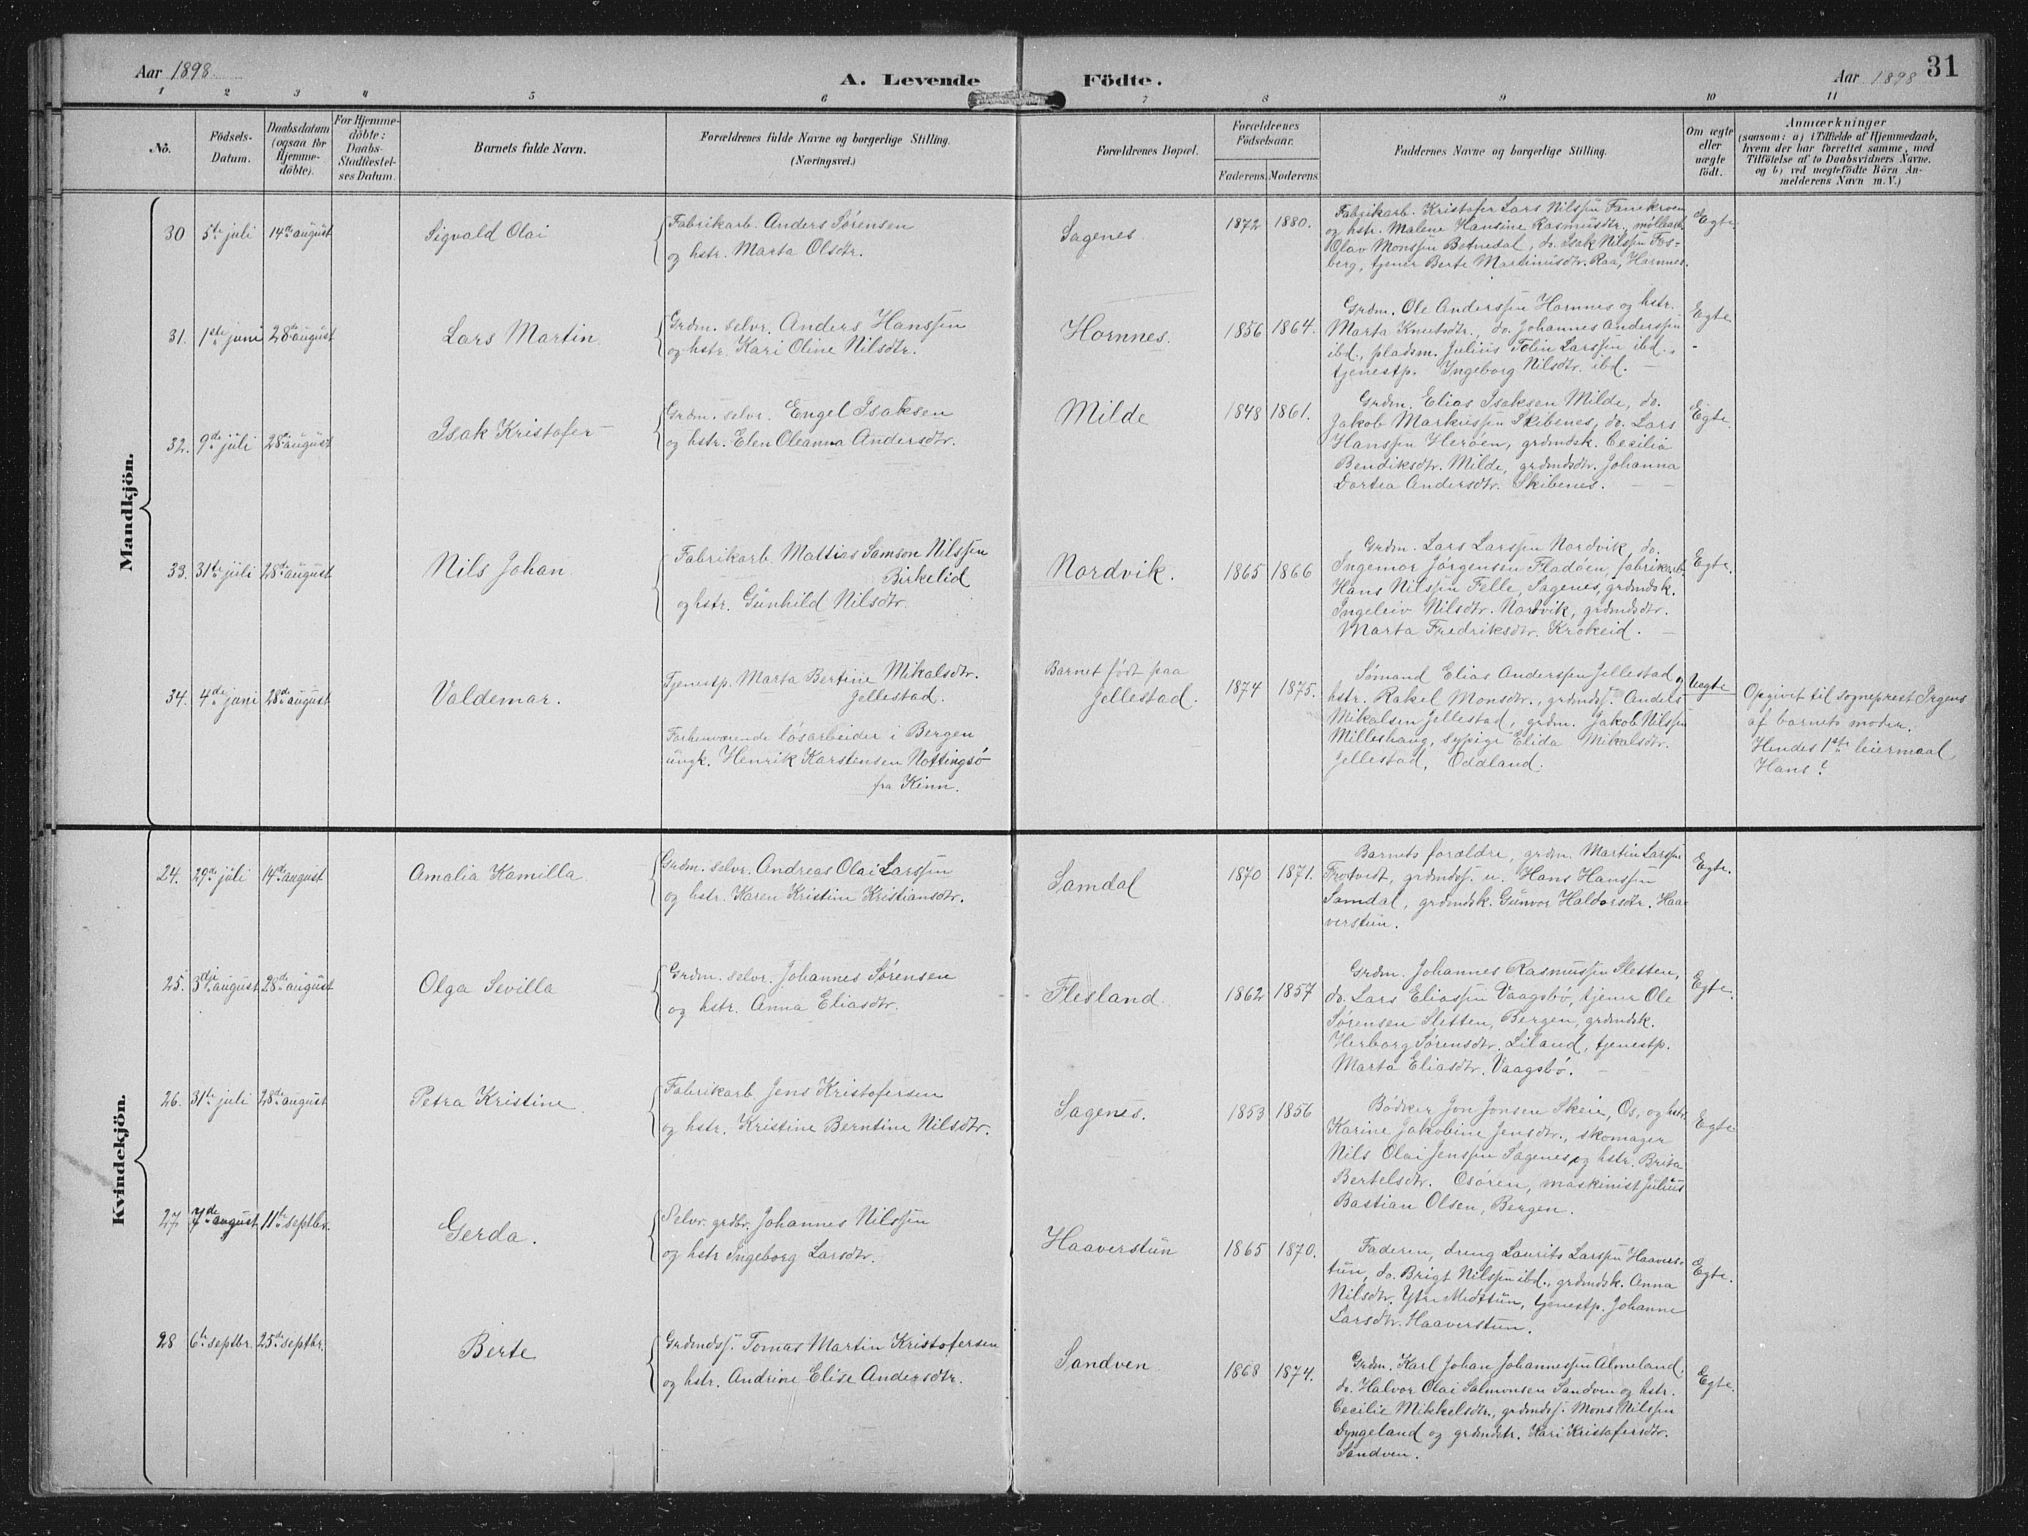 Aar 1898.
A. Levende Födte.
Aar 1898
31
1 2 3 4 5 6 7 8 9 10 11
No.
Födsels-
Datum.
Daabsdatum
(ogsaa for
Hjemme-
döbte).
For Hjemme-
döbte:
Daabs-
Stadfæstel-
ses Datum.
Barnets fulde Navn.
Forældrenes fulde Navne og borgerlige Stilling.
(Næringsvei.)
Forældrenes Bopæl.
Forældrenes
Födselsaar.
Faderens. Moderens.
Faddernes Navne og borgerlige Stilling.
Om ægte
eller
uægte
födt.
Anmærkninger
(saasom: a) i Tilfælde af Hjemmedaab,
hvem der har forrettet samme, med
Tilföielse af to Daabsvidners Navne.
og b) ved uægtefödte Börn An-
melderens Navn m. V.)
Mandkjön.
30 5te juli 14de august Sigvald Olai
Fabrikarb. Anders Sørensen
og hstr. Marta Olsdtr.
Sagenes. 1872 1880.
Fabrikarb. Kristofer Lars Nilssen Fanekroen
og hstr. Malene Hansine Rasmusdtr., møllearb.
Olav Monssen Botnedal, do. Isak Nilssen Fos-
berg, tjener Berte Martinusdtr. Raa, Hornnes.
Egte
31. 1ste juni 28de august Lars Martin
Grdm. selvr. Anders Hanssen
og hstr. Kari Oline Nilsdtr.
Hornnes. 1856 1864.
Grdm. Ole Anderssen Hornnes og hstr.
Marta Knutsdtr., do. Johannes Anderssen
ibd., pladsm. Julius Tolin Larssen ibd.,
tjenestp. Ingeborg Nilsdtr. ibd.
Egte
32. 9de juli 28de august Isak Kristofer
Grdm. selvr. Engel Isaksen
og hstr. Elen Oleanna Andersdtr.
Milde 1848 1861.
Grdm. Elias Isaksen Milde, do.
Jakob Markussen Skibenes, do. Lars
Hanssen Herøen, grdmdsk. Cecilia
Bendiksdtr. Milde, grdmdsdtr. Johanna
Dortea Andersdtr. Skibenes.
Egte.
33. 31te juli 28de august Nils Johan
Fabrikarb. Mattias Samson Nilssen
Birkelid
og hstr. Gunhild Nilsdtr.
Nordvik. 1865 1866
Grdm. Lars Larssen Nordvik, do.
Ingemor Jørgensen Fladøen, fabrikarb.
Hans Nilssen Felle, Sagenes, grdmdsk.
Ingeleiv Nilsdtr. Nordvik, grdmdsdtr.
Marta Fredriksdtr. Krokeid.
Egte.
34. 4de juni 28de august Valdemar.
Tjenestp. Marta Bertine Mikalsdtr.
Jellestad.
Forhenværende løsarbeider i Bergen
ungk. Henrik Karstensen Nottingsø
fra Kinn.
Barnet født paa
Jellestad. 1874 1875.
Sømand Elias Anderssen Jellestad og
hstr. Rakel Monsdtr., grdmdss. Anders
Mikalsen Jellestad, grdm. Jakob Nilssen
Milleshaug, sypige Elida Mikalsdtr.
Jellestad, Oddland.
Uegte
Opgivet til sogneprest Irgens
af barnets moder.
Hendes 1ste leiermaal
Hans ?
Kvindekjön.
24. 29de juli 14de august Amalia Kamilla
Grdm. selvr. Andreas Olai Larssen
og hstr. Karen Kristine Kristiansdtr.
Samdal 1870 1871.
Barnets forældre, grdm. Martin Larssen
Trodvedt, grdmdss. u. Hans Hanssen
Samdal, grdmdsk. Gunvor Haldorsdtr. Haa-
verstun.
Egte.
25. 3die august 28de august Olga Sevilla
Grdm. selvr. Johannes Sørensen
og hstr. Anna Eliasdtr.
Flesland. 1862 1857
Grdm. Johannes Rasmussen Sletten,
do. Lars Eliassen Vaagsbø, tjener Ole
Sørensen Sletten, Bergen, grdmdsk.
Herborg Sørensdtr. Liland, tjenestp.
Marta Eliasdtr. Vaagsbø.
Egte.
26. 31te juli 28de august Petra Kristine
Fabrikarb. Jens Kristofersen
og hstr. Kristine Berntine Nilsdtr.
Sagenes. 1853 1856
Bødker Jon Jonsen Skeie, Os, og hstr.
Karine Jakobine Jensdtr., skomager
Nils Olai Jenssen Sagenes og hstr. Brita
Bertelsdtr. Osøren, maskinist Julius
Bastian Olsen, Bergen.
Egte
27. 7de august 11te septbr. Gerda.
Selvr. grdbr. Johannes Nilssen
og hstr Ingeborg Larsdtr.
Haaverstun 1865 1870.
Faderen, dreng Laurits Larssen Haavers-
tun, do. Brigt Nilssen ibd., grdmdsk. Anna
Nilsdtr. Ytre Midttun, tjenestp. Johanne
Larsdtr. Haaverstun.
Egte.
28 6te septbr. 25de septbr. Berte
Grdmdss. Tomas Martin Kristofersen
og hstr. Andrine Elise Andersdtr.
Sandven. 1868 1874.
Grdm. Karl Johan Johannessen Almeland,
do. Halvor Olai Salmonsen Sandven og hstr.
Cecilie Mikkelsdtr., grdmdss. Mons Nilssen
Dyngeland og grdmdstr. Kari Kristofersdtr.
Sandven.
Egte.